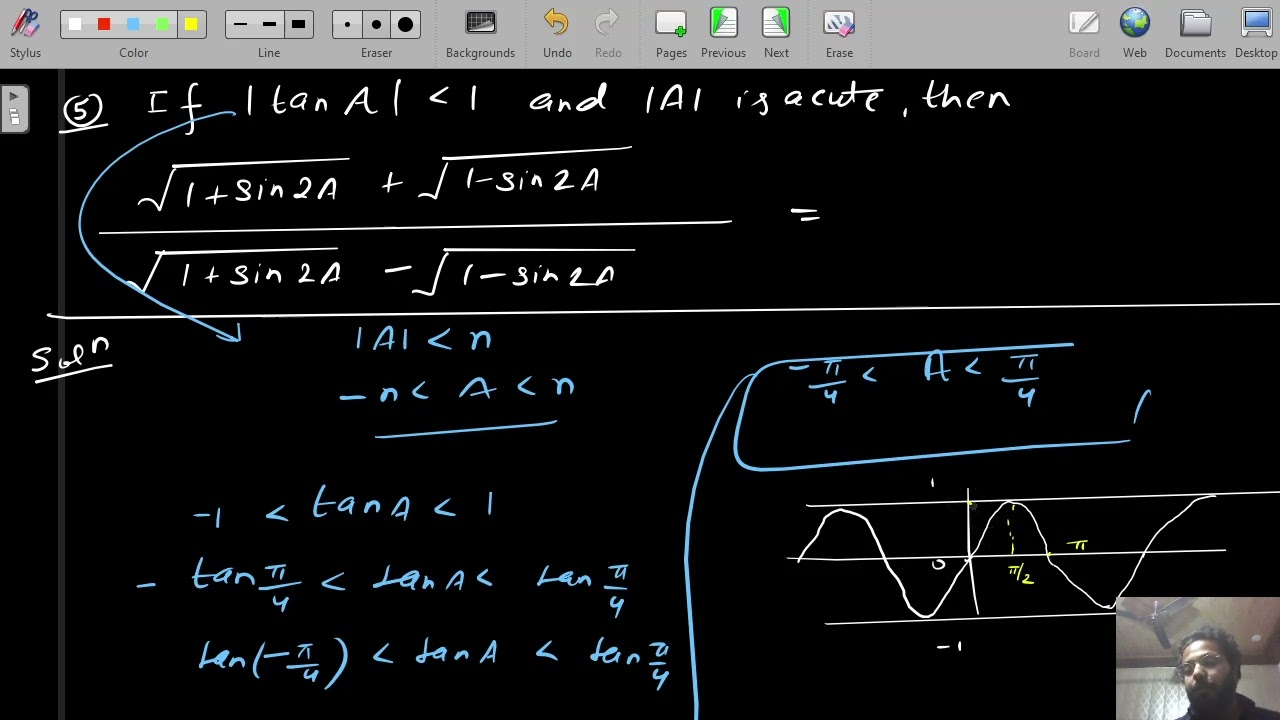 Stylus Color Line Eraser Backgrounds Undo Redo Pages Previous Next Erase Board Web Documents Desktop
⑤ If |tan A| < 1 and |A| is acute, then
√(1 + sin 2A) + √(1 - sin 2A)
=
√(1 + sin 2A) - √(1 - sin 2A)
Soln
|A| < n
- n < A < n
- π/4 < A < π/4
-1 < tan A < 1
- tan π/4 < tan A < tan π/4
tan(-π/4) < tan A < tan π/4
1
0
π/2
π
-1